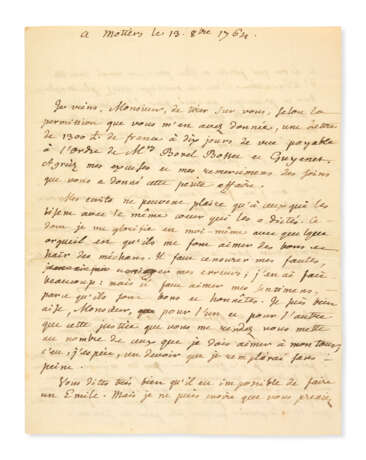 a Motiers le 13. 8bre 1764.
Je viens, Monsieur, de tirer sur vous, selon la
permission que vous m'en avez donnée, une lettre
de 1300 ₶. de france à dix jours de vue payable
à l'Ordre de Mrs Borel Bosset et Guyenet.
Agréez mes excuses et mes remerciemens des soins
que vous a donné cette petite affaire.
Mes écrits ne peuvent plaire qu'à ceux qui les
lisent avec le même cœur qui les a dictés. Ce
dont je me glorifie en moi-même avec quelque
orgueil est qu'ils me font aimer des bons et
haïr des méchans. Il faut censurer mes fautes
mes erreurs; j'en ai fait
beaucoup: mais il faut aimer mes sentimens,
parce qu'ils sont bons et honnêtes. Je suis bien
aise, Monsieur, que pour l'un et pour l'autre
que cette justice que vous me rendez vous mette
au nombre de ceux que je dois aimer à mon tour;
c'est, j'espère, un devoir que je remplirai sans
peine.
Vous dites très bien qu'il est impossible de faire
un Emile. Mais je ne puis croire que vous preniez